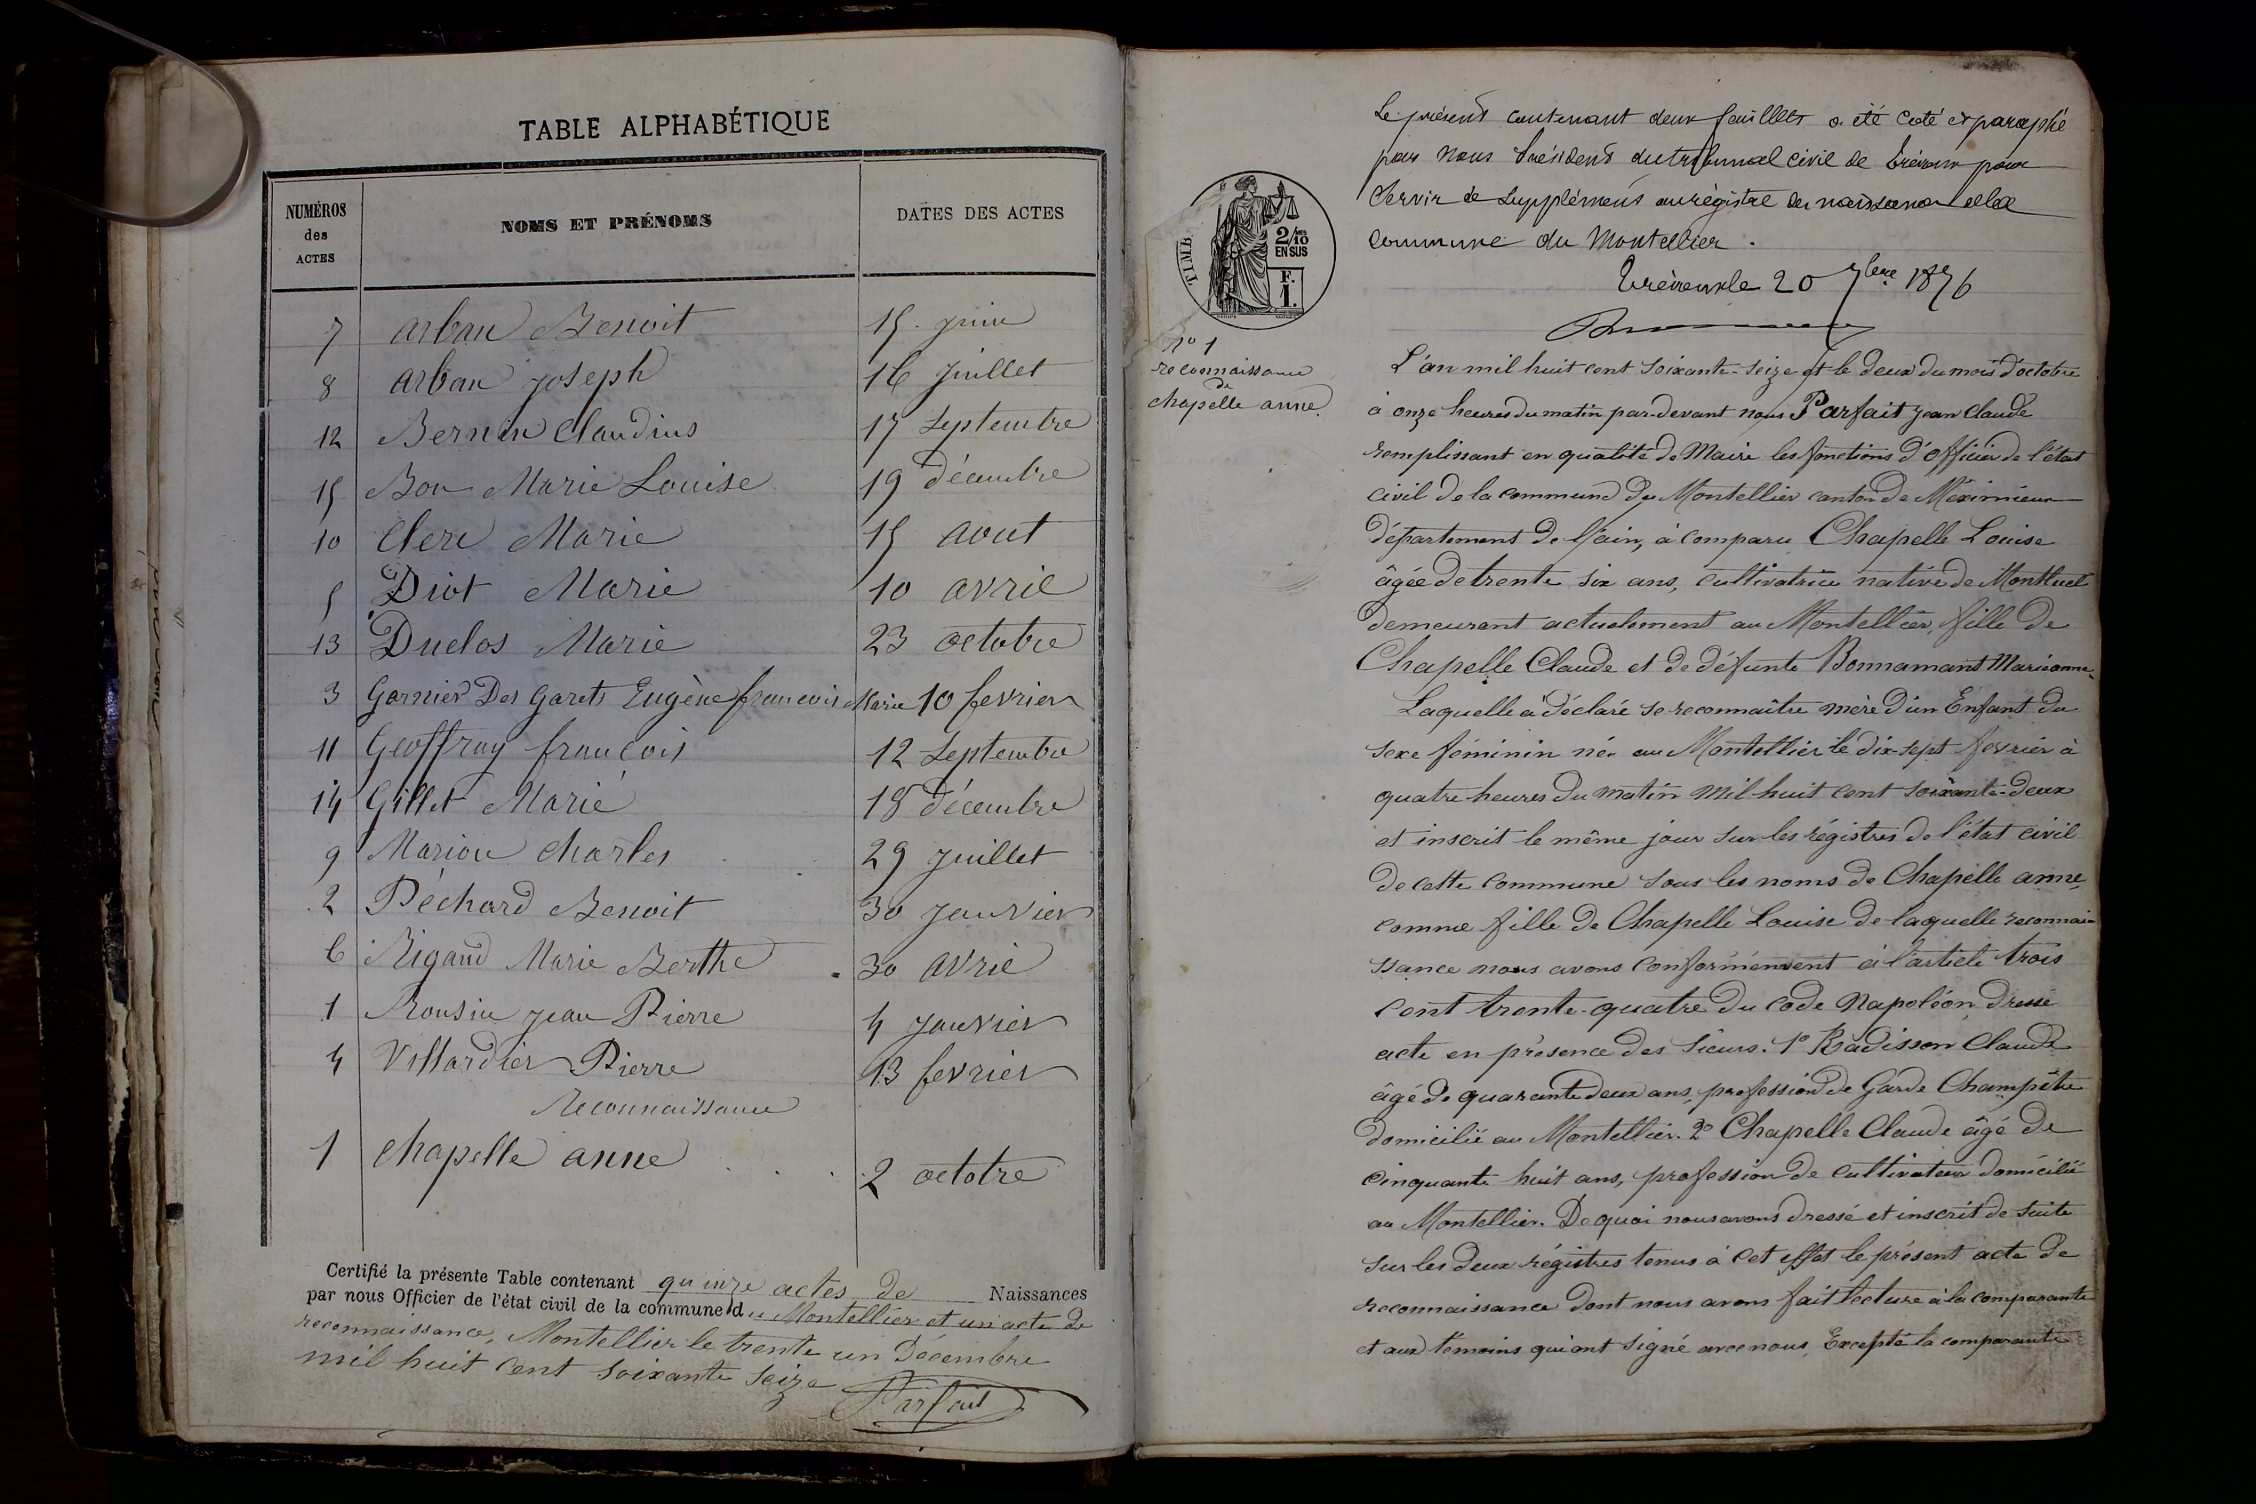 TABLE ALPHABÉTIQUE
NUMÉROS des ACTES
NOMS ET PRÉNOMS
DATES DES ACTES
7 Arban Benoit 15 juin
8 Arban joseph 16 juillet
12 Bernin Claudius 17 Septembre
15 Bon Marie Louise 19 décembre
10 Clere Marie 15 aout
5 Diot Marie 10 avril
13 Duclos Marie 23 octobre
3 Garnier Des Garets Eugène francois Marie 10 fevrier
11 Geoffray francois 12 Septembre
14 Gillet Marie 18 décembre
9 Marion charles 29 juillet
2 Péchard Benoit 30 janvier
6 Rigaud Marie Berthe 30 avril
1 Rousin jean Pierre 4 janvier
4 Villardier Pierre 13 fevrier
Reconnaissance
1 chapelle anne 2 octobre
Certifié la présente Table contenant quinze actes de Naissances
par nous Officier de l'état civil de la commune du Montellier et un acte de
reconnaissance, Montellier le trente un Décembre
mil huit cent soixante seize
Parfait
TIMB
2/10 EN SUS
F.
1.
Le présent contenant deux feuillets a été coté et paraphé
par nous Président du tribunal civil de Trévoux pour
servir de Supplément au régistre des naissances de la
commune du Montellier.
Trévoux le 20 7bre 1876
No 1
reconnaissance
de
chapelle anne.
L'an mil huit cent soixante-seize et le deux du mois d'octobre
à onze heures du matin par-devant nous Parfait jean Claude
remplissant en qualité de Maire les fonctions d'officier de l'état
civil de la commune du Montellier canton de Méximieux
département de l'ain, à comparu Chapelle Louise
âgée de trente six ans, cultivatrice native de Montluel
demeurant actuelement au Montellier, fille de
Chapelle Claude et de défunte Bonnamant Marianne.
Laquelle à déclaré se reconnaître mère d'un Enfant du
sexe féminin né au Montellier le dix-sept fevrier à
quatre heures du matin mil-huit cent soixante-deux
et inscrit le même jour sur les régistres de l'état civil
de cette commune sous les noms de Chapelle anne,
comme fille de Chapelle Louise de laquelle reconnai-
ssance nous avons conformément à l'article trois
cent trente-quatre du code Napoléon, dressé
acte en présence des sieurs. 1o Radisson Claude
âgé de quarante deux ans, profession de Garde Champêtre
domicilié au Montellier. 2o Chapelle Claude âgé de
cinquante huit ans, profession de cultivateur domicilié
au Montellier. De quoi nous avons dressé et inscrit de suite
sur les deux régistres tenus à cet effet le présent acte de
reconnaissance dont nous avons fait lecture à la comparante
et aux témoins qui ont signé avec nous, Excepté la comparante